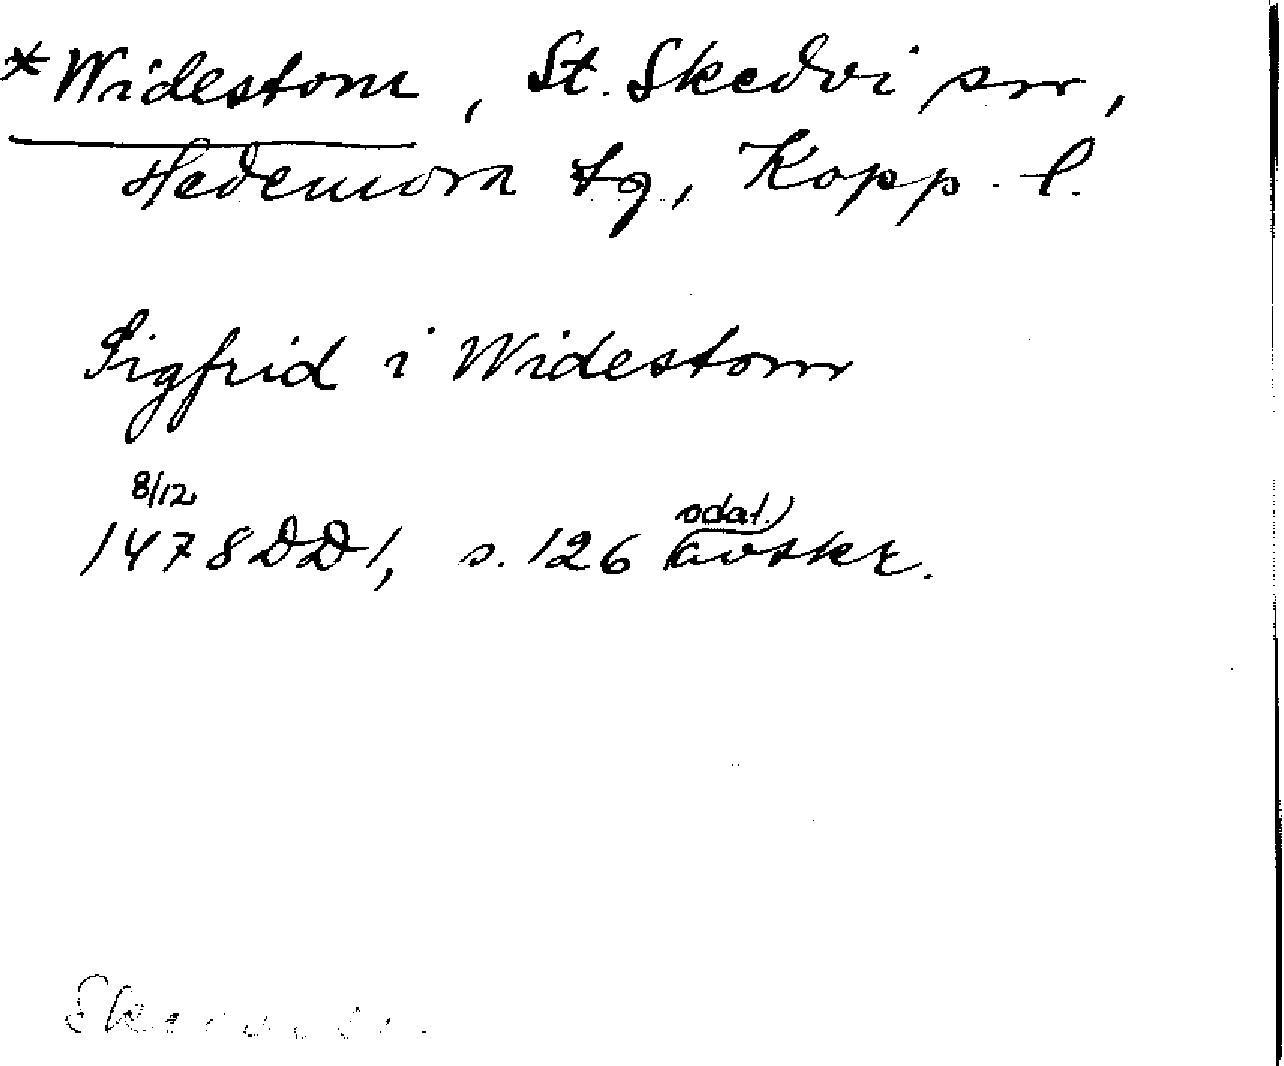 *Widestom, St. Skedvi sn,
Hedemora tg, Kopp. l.
Sigfrid i Widestom
8/12
1478 DD1, s. 126 (odat.) avskr.